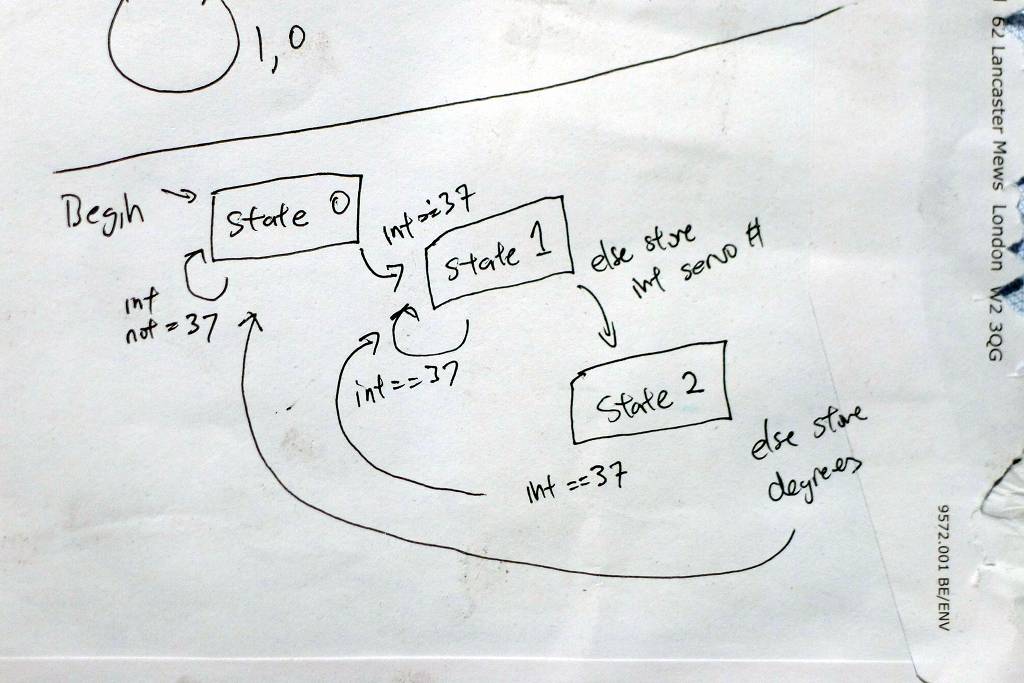 1, 0
Begin
State 0
int
not = 37
int == 37
State 1
int == 37
else store
int servo #
State 2
int == 37
else store
degrees
62 Lancaster Mews London W2 3QG
9572.001 BE/ENV